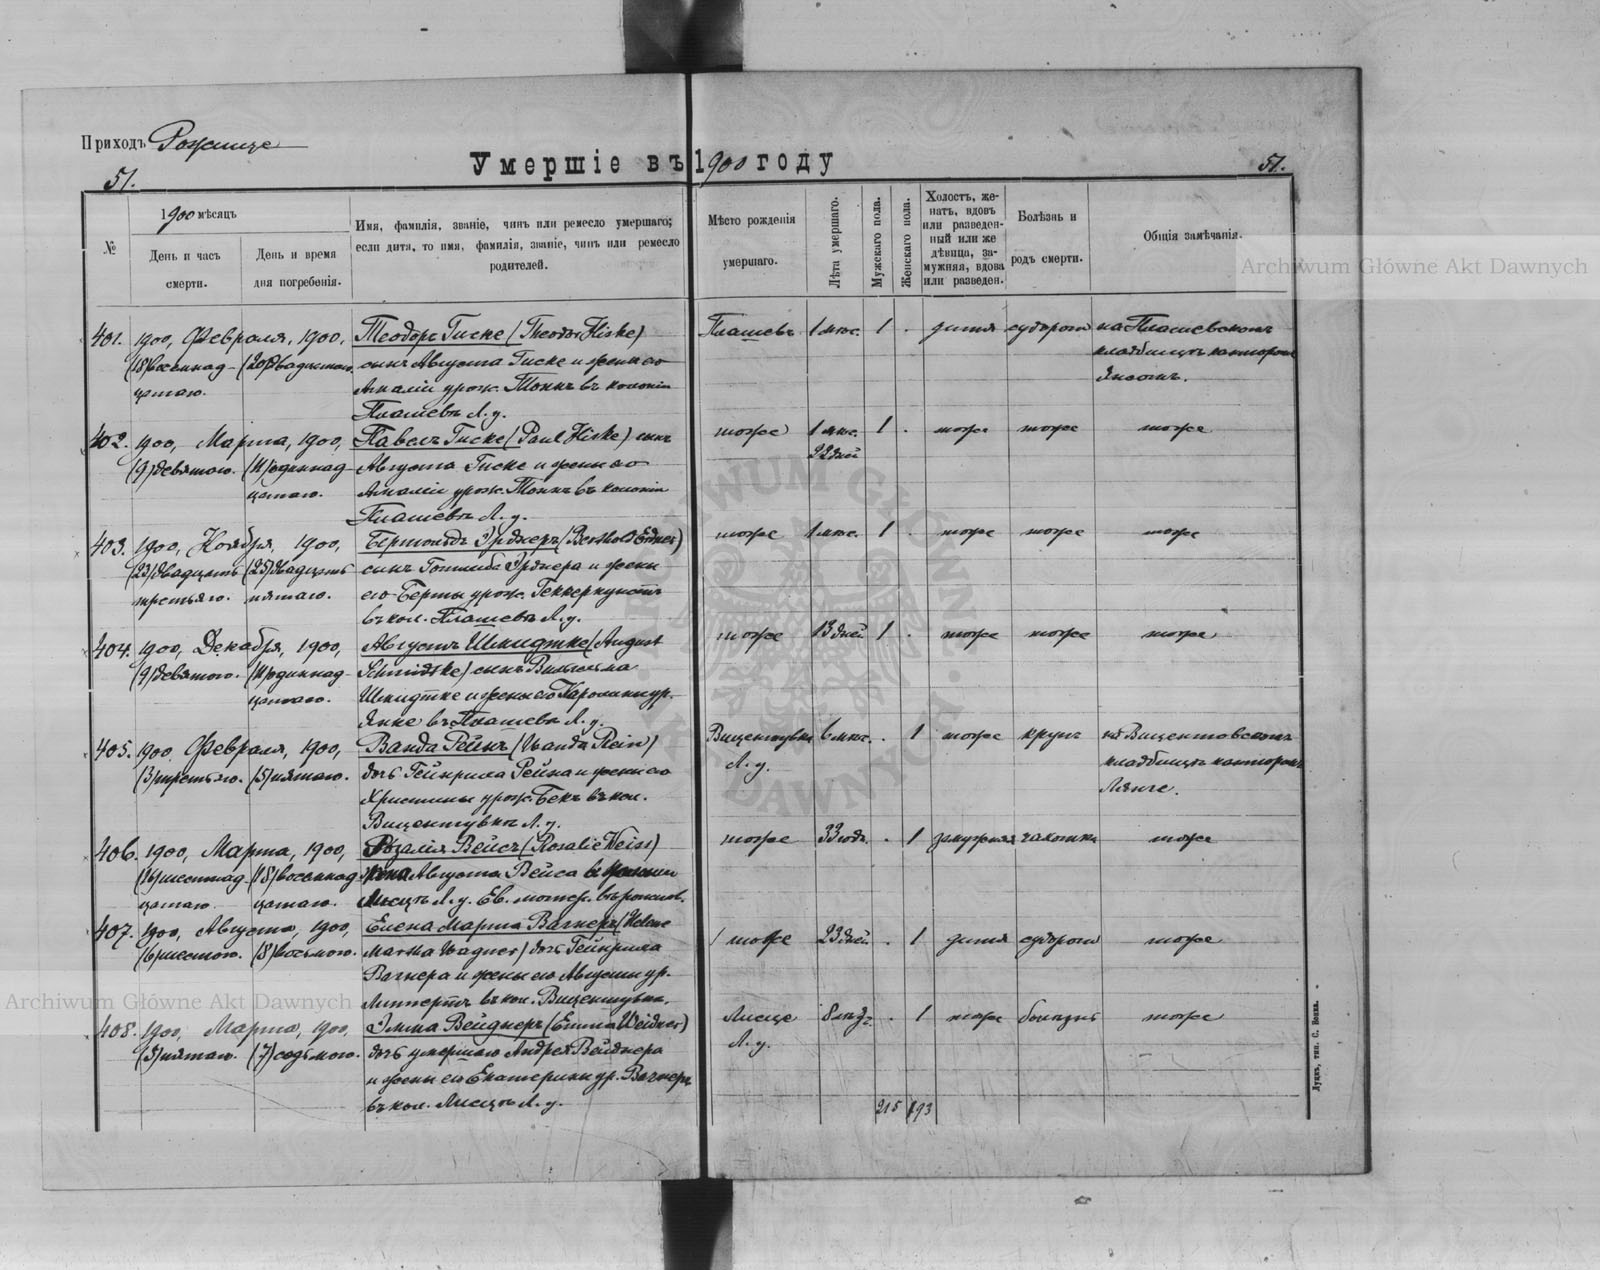 Приходъ Рожище
Умершіе въ 1900 году
51.
51.
№
1900 мѣсяцъ
День и часъ смерти.
День и время дня погребенія.
Имя, фамилія, званіе, чинъ или ремесло умершаго;
если дитя, то имя, фамилія, званіе, чинъ или ремесло
родителей.
Мѣсто рожденія
умершаго.
Лѣта умершаго.
Мужскаго пола.
Женскаго пола.
Холостъ, же-
натъ, вдовъ
или разведен-
ный или же
дѣвица, за-
мужняя, вдова
или разведен.
Болѣзнь и
родъ смерти.
Общія замѣчанія.
Archiwum Główne Akt Dawnych
401. 1900, Февраля, 1900, Теодоръ Гиске (Theodor Hiske) Плашевъ 1 мѣс. 1 . дитя судороги на Плашевскомъ
(18) восемнад- (20) двадцатаго. сынъ Августа Гиске и жены его кладбищѣ канторомъ
цатаго. Амаліи урож. Тонкъ въ колоніи Янсонъ.
Плашевъ Л. у.
402. 1900, Марта, 1900, Павелъ Гиске (Paul Hiske) сынъ тоже 1 мѣс. 1 . тоже тоже тоже
(9) девятаго. (11) одиннад- Августа Гиске и жены его 22 дней
цатаго. Амаліи урож. Тонкъ въ колоніи
Плашевъ Л. у.
403. 1900, Ноября, 1900, Бертольдъ Эрднеръ (Berthold Erdner) тоже 1 мѣс. 1 . тоже тоже тоже
(23) двадцать (25) двадцать сынъ Готлиба Эрднера и жены
третьяго. пятаго. его Берты урож.
въ кол. Плашевъ Л. у.
404. 1900, Декабря, 1900, Августъ Шмидтке (August тоже 13 дней 1 . тоже тоже тоже
(9) девятаго. (11) одиннад- Schmidtke) сынъ Вильгельма
цатаго. Шмидтке и жены его Каролины ур.
Янке въ Плашевъ Л. у.
405. 1900, Февраля, 1900, Ванда Рейнъ (Wanda Rein) Вицентувка 6 мѣс. . 1 тоже крупъ на Вицентовскомъ
(3) третьяго. (5) пятаго. дочь Гейнриха Рейна и жены его Л. у. кладбищѣ канторомъ
Христины урож. Бекъ въ кол. Лянге.
Вицентувка Л. у.
406. 1900, Марта, 1900, Розалія Вейсъ (Rosalie Weiss) тоже 33 года . 1 замужняя чахотка тоже
(16) шестнад- (18) восемнад- жена Августа Вейса въ колоніи
цатаго. цатаго. Лисцъ Л. у. Ев. лютер. вѣроисповѣд.
407. 1900, Августа, 1900, Елена Марта Вагнеръ (Helene тоже 23 дней . 1 дитя судороги тоже
(6) шестого. (8) восьмого. Martha Wagner) дочь Гейнриха
Вагнера и жены его Августы ур.
Липпертъ въ кол. Вицентувка.
Archiwum Główne Akt Dawnych
408. 1900, Марта, 1900, Эмма Вейднеръ (Emma Weidner) Лисце . 1 тоже тоже
(5) пятаго. (7) седьмого. дочь умершаго Андрея Вейднера Л. у.
и жены его Екатерины ур. Вагнеръ
въ кол. Лисцъ Л. у.
215 193
Луцкъ, тип. С. Бокка.
ARCHIWUM GŁÓWNE AKT DAWNYCH